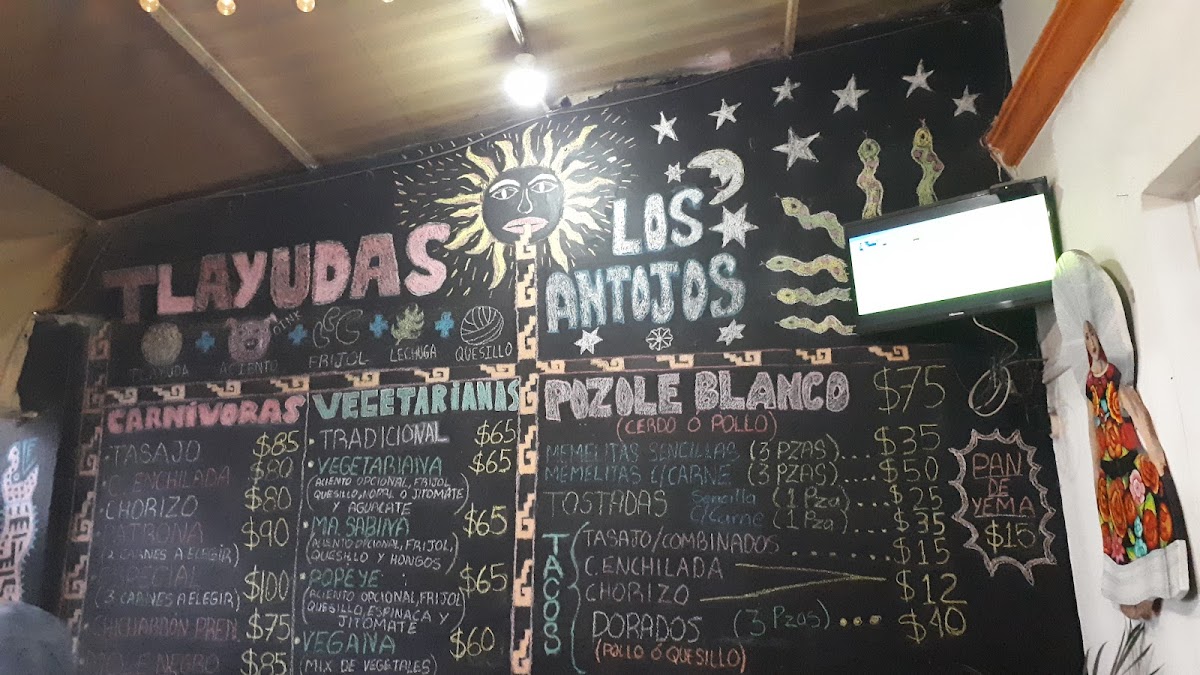 TLAYUDAS
TLAYUDA + ASIENTO + FRIJOL + LECHUGA + QUESILLO
OINK
LOS
ANTOJOS
CARNÍVORAS
TASAJO $85
C. ENCHILADA $80
CHORIZO $80
PATRONA $90
(2 CARNES A ELEGIR)
ESPECIAL $100
(3 CARNES A ELEGIR)
CHICHARRÓN PREN. $75
NEGRO $85
VEGETARIANAS
TRADICIONAL $65
VEGETARIANA $65
(ACIENTO OPCIONAL, FRIJOL
QUESILLO, NOPAL O JITOMATE
Y AGUACATE
MA. SABINA $65
(ACIENTO OPCIONAL, FRIJOL,
QUESILLO Y HONGOS)
POPEYE $65
(ACIENTO OPCIONAL, FRIJOL
QUESILLO, ESPINACA Y
JITOMATE
VEGANA $60
(MIX DE VEGETALES)
POZOLE BLANCO $75
(CERDO O POLLO)
MEMELITAS SENCILLAS (3 PZAS).... $35
MEMELITAS C/CARNE (3 PZAS).... $50
TOSTADAS Sencilla (1 Pza)... $25
C/Carne (1 Pza)... $35
TACOS
TASAJO/COMBINADOS ....... $15
C. ENCHILADA
CHORIZO $12
DORADOS (3 Pzas) ... $40
(POLLO Ó QUESILLO)
PAN
DE
YEMA
$15